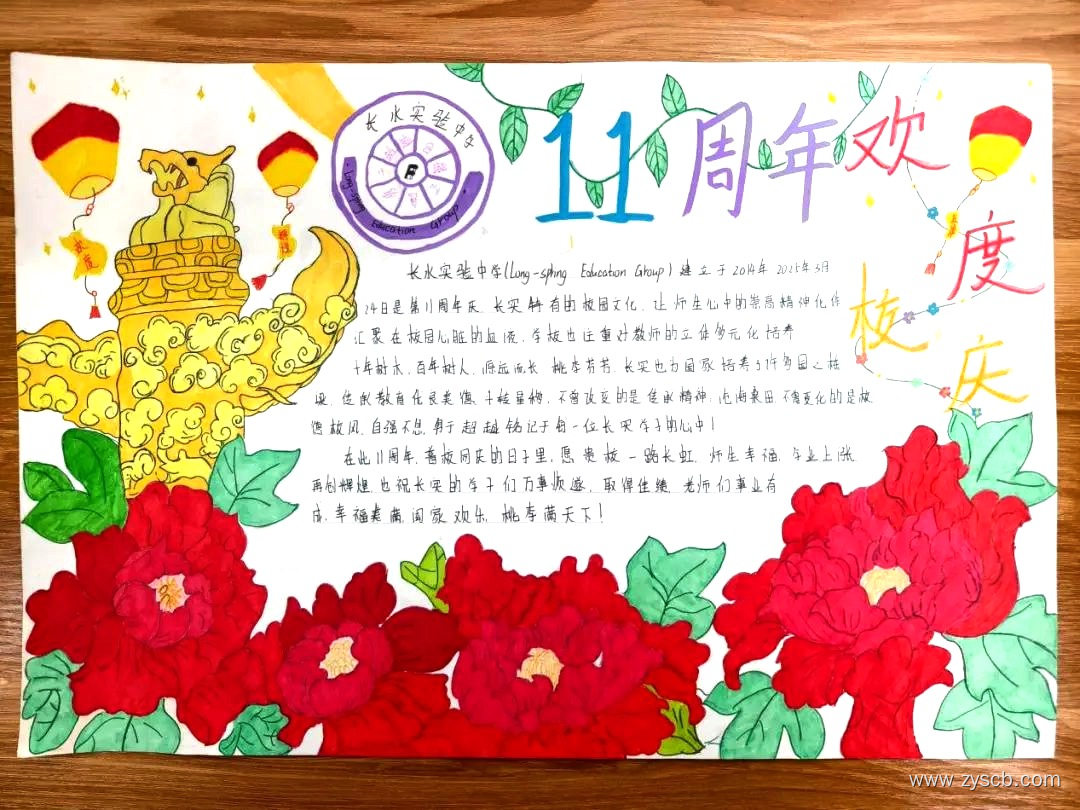 长水实验中学
Long-spring Education Group
F
11周年欢
度
校
庆
长水实验中学(Long-spring Education Group)建立于2014年 2025年3月
24日是第11周年庆,长实特有的校园文化,让师生心中的崇高精神化作
汇聚在校园心脏的血液,学校也注重对教师的立体多元化培养
十年树木,百年树人,源远流长 桃李芬芳,长实也为国家培养了许多国之栋
梁,传承教育优良美德,十载星辉,不曾改变的是传承精神,沧海桑田 不曾变化的是校
德校风,自强不息,勇于超越铭记于每一位长实学子的心中!
在此11周年,普校同庆的日子里,愿贵校一路长虹,师生幸福,学业上涨
再创辉煌,也祝长实的学子们万事顺遂,取得佳绩,老师们事业有
成,幸福美满,阖家欢乐,桃李满天下!
www.zyscb.com